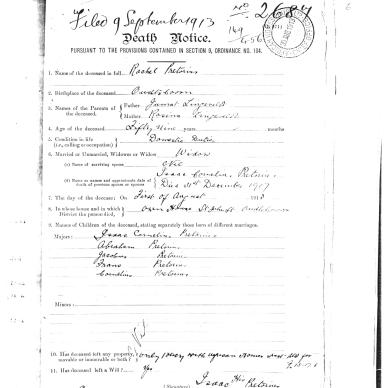 Filed 9 September 1913
No. 2687
Death Notice.
PURSUANT TO THE PROVISIONS CONTAINED IN SECTION 9, ORDINANCE NO. 104.
1. Name of the deceased in full Rachel Pretorius
2. Birthplace of the deceased Oudtshoorn
3. Names of the Parents of the deceased. Father
Mother Rosina
4. Age of the deceased Fifty Nine years, months
5. Condition in life (i.e., calling or occupation) Domestic Duties
6. Married or Unmarried, Widower or Widow Widow
(a) Name of surviving spouse Nil
(b) Name or names and approximate date of death of previous spouse or spouses Isaac Cornelius Pretorius
Died 31st December 1907
7. The day of the decease: On First of August 1913
8. In whose house and in which District the person died, own House Oudtshoorn
9. Names of Children of the deceased, stating separately those born of different marriages.
Majors: Isaac Cornelius Pretorius
Abraham Pretorius
Jacobus Pretorius
Frans Pretorius
Cornelius Pretorius
Minors:
10. Has deceased left any property, movable or immovable or both?
11. Has deceased left a Will? Yes
(Signature) Isaac His Pretorius